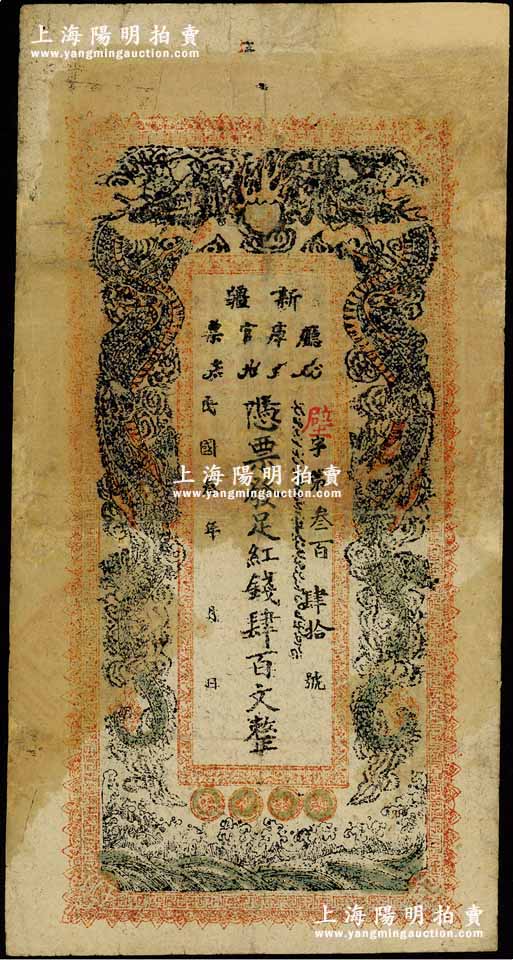 上海陽明拍賣
www.yangmingauction.com
新疆
廳庫官票
壁字第叁百肆拾號
憑票發足紅錢肆百文整
民國 年 月 日
上海陽明拍賣
www.yangmingauction.com
上海陽明拍賣
www.yangmingauction.com